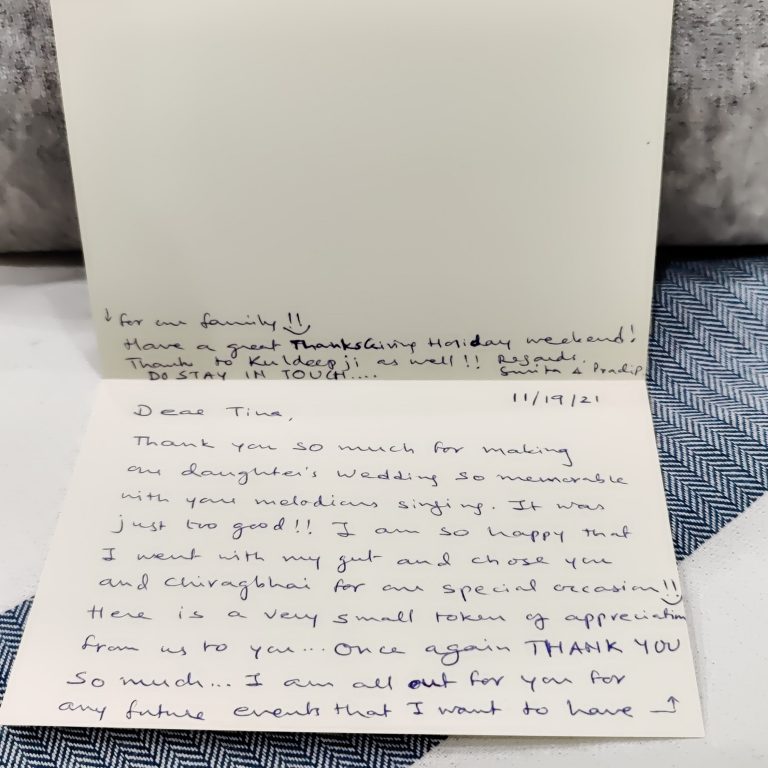 11/19/21
Dear Tina,
Thank you so much for making
our daughter's wedding so memorable
with your melodious singing. It was
just too good!! I am so happy that
I went with my gut and chose you
and Chiragbhai for our special occasion!!
Here is a very small token of appreciation
from us to you... Once again THANK YOU
So much... I am all out for you for
any future events that I want to have →
↓ for our family!!
Have a great ThanksGiving Holiday weekend!
Thanks to Kuldeepji as well!! Regards,
DO STAY IN TOUCH.... Smita & Pradip